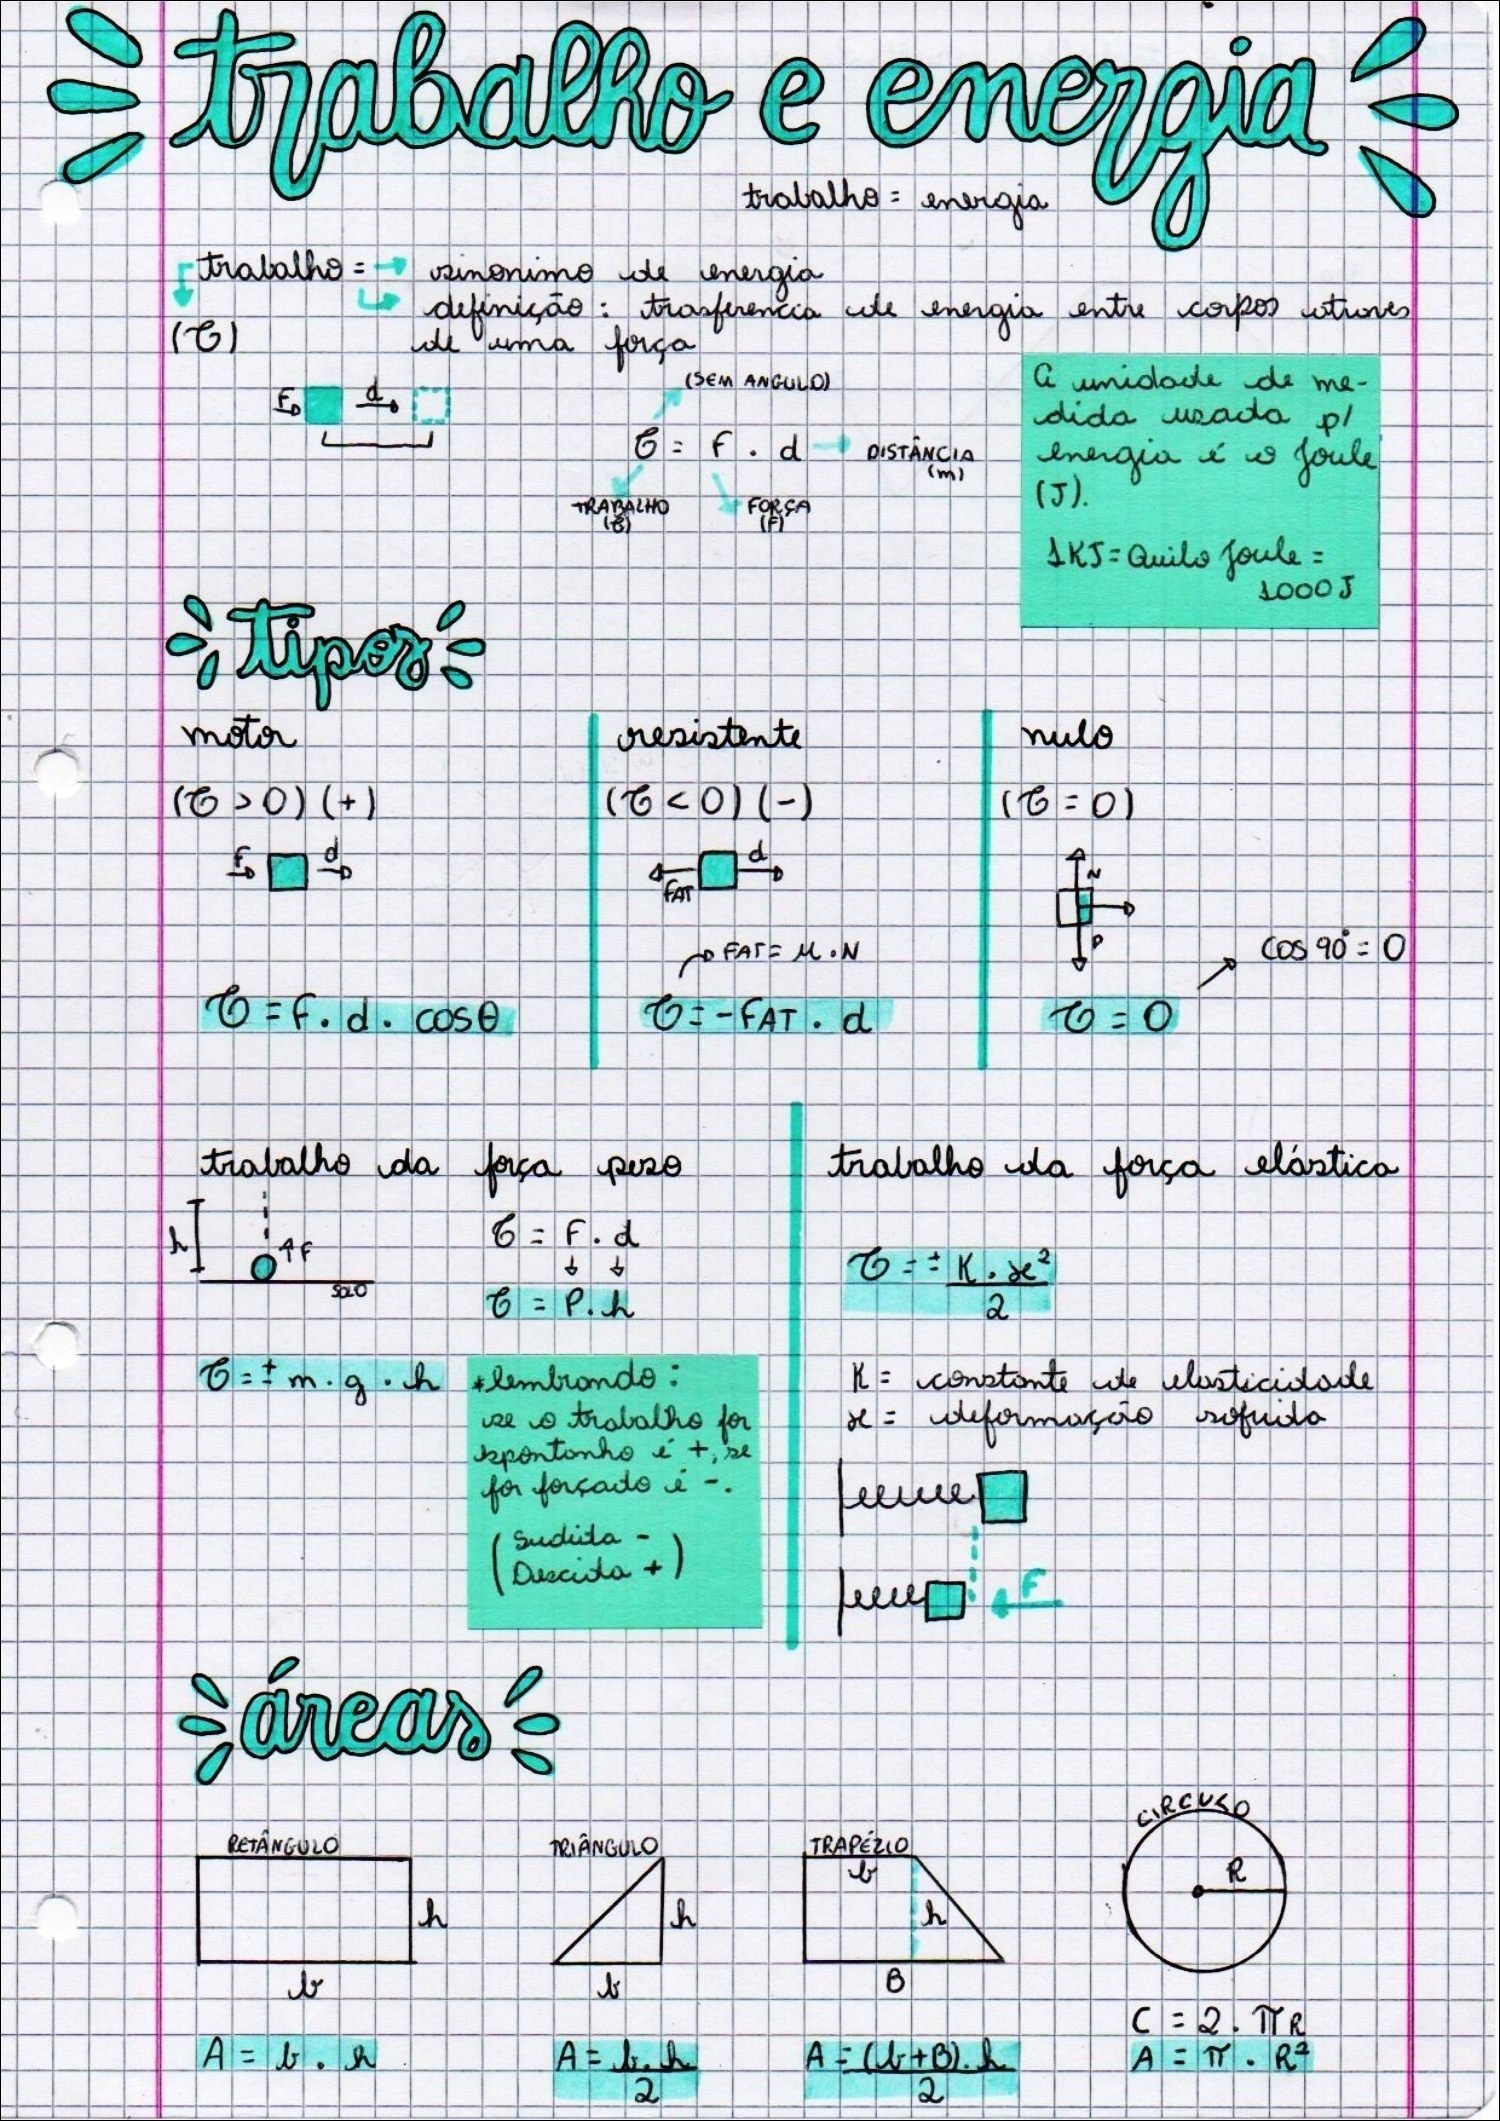 trabalho e energia
trabalho = energia
trabalho = → sinonimo de energia
definição: trasferencia de energia entre corpos atraves
(τ) de uma força
F d
(SEM ANGULO)
τ = F . d → DISTÂNCIA
(m)
TRABALHO
(τ)
FORÇA
(F)
A unidade de me-
dida usada p/
energia é o Joule
(J).
1KJ = Quilo Joule =
1000J
tipos
motor
(τ > 0) (+)
F d
τ = F . d . cosθ
resistente
(τ < 0) (-)
FAT d
FAT = μ . N
τ = -FAT . d
nulo
(τ = 0)
N
P
cos 90° = 0
τ = 0
trabalho da força peso
h F
SOLO
τ = F . d
↓ ↓
τ = P . h
τ = ± m . g . h
*lembrando:
se o trabalho for
espontanho é +, se
for forçado é -.
(Subida -
Descida +)
trabalho da força elástica
τ = ± K . x²
2
K = constante de elasticidade
x = deformação sofrida
F
áreas
RETÂNGULO
h
b
A = b . h
TRIÂNGULO
h
b
A = b . h
2
TRAPÉZIO
b
h
B
A = (b + B) . h
2
CIRCULO
R
C = 2 . πR
A = π . R²